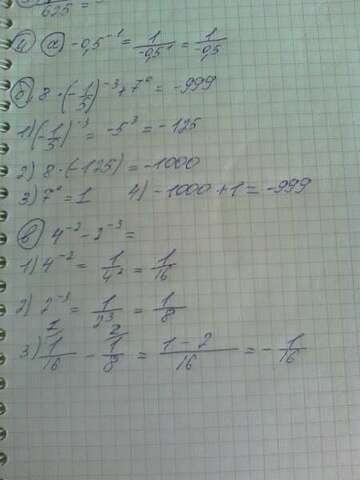 625 =
4) а) -0,5⁻¹ = 1/-0,5¹ = 1/-0,5
б) 8 · (-1/5)⁻³ + 7⁰ = -999
1) (-1/5)⁻³ = -5³ = -125
2) 8 · (-125) = -1000
3) 7⁰ = 1 4) -1000 + 1 = -999
в) 4⁻² - 2⁻³ =
1) 4⁻² = 1/4² = 1/16
2) 2⁻³ = 1/2³ = 1/8
3) 1/16 - 1/8 = 1-2/16 = -1/16